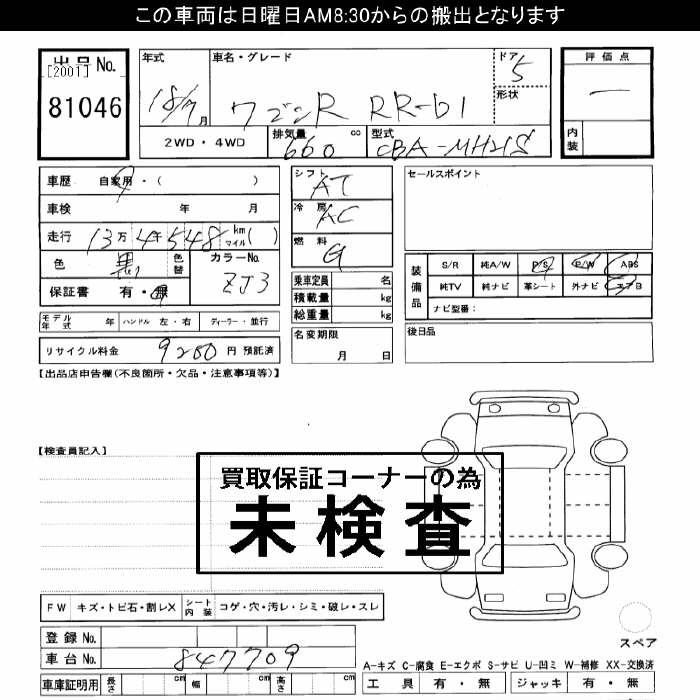 この車両は日曜日AM8:30からの搬出となります
出品No.
[2001]
81046
年式 18/7 月
車名・グレード ワゴンR RR-DI
ドア 5
形状
評価点 —
内装
2WD・4WD
排気量 660 cc
型式 CBA-MH21S
車歴 自家用・( )
車検 年 月
走行 13万4千548 km マイル( )
色 黒 色替
カラーNo. ZJ3
保証書 有・無
モデル年式 年 ハンドル 左・右 ディーラー・並行
リサイクル料金 9280 円 預託済
シフト AT
冷房 AC
燃料 G
乗車定員 名
積載量 kg
総重量 kg
名変期限
月 日
セールスポイント
装備品
S/R 純A/W P/S P/W ABS
純TV 純ナビ 革シート 外ナビ エアB
ナビ型番:
後日品
【出品店申告欄(不良箇所・欠品・注意事項等)】
【検査員記入】
買取保証コーナーの為
未検査
FW キズ・トビ石・割レX シート内装 コゲ・穴・汚レ・シミ・破レ・スレ
登録No.
車台No. 847709
車庫証明用 長さ cm 幅 cm 高さ cm
スペア
A-キズ C-腐食 E-エクボ S-サビ U-凹ミ W-補修 XX-交換済
工具 有・無 ジャッキ 有・無